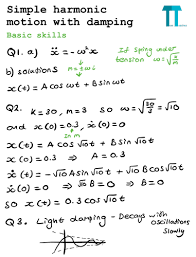 Simple harmonic
motion with damping
Basic skills
Q1. a) ẍ = -ω²x
If spring under
tension ω = √
b) solutions
m = ± ωi
x(t) = A cos ωt + B sin ωt
Q2.
k = 30, m = 3 so ω = √30/3 = √10
and x(0) = 0.3, ẋ(0) = 0
x(t) = A cos √10t + B sin √10t
x(0) = 0.3 ⇒ A = 0.3
ẋ(t) = -√10 A sin √10t + √10 B cos √10t
ẋ(0) = 0 ⇒ √10 B = 0 ⇒ B = 0
so x(t) = 0.3 cos √10t
Q3. Light damping - Decays with
oscillations
slowly